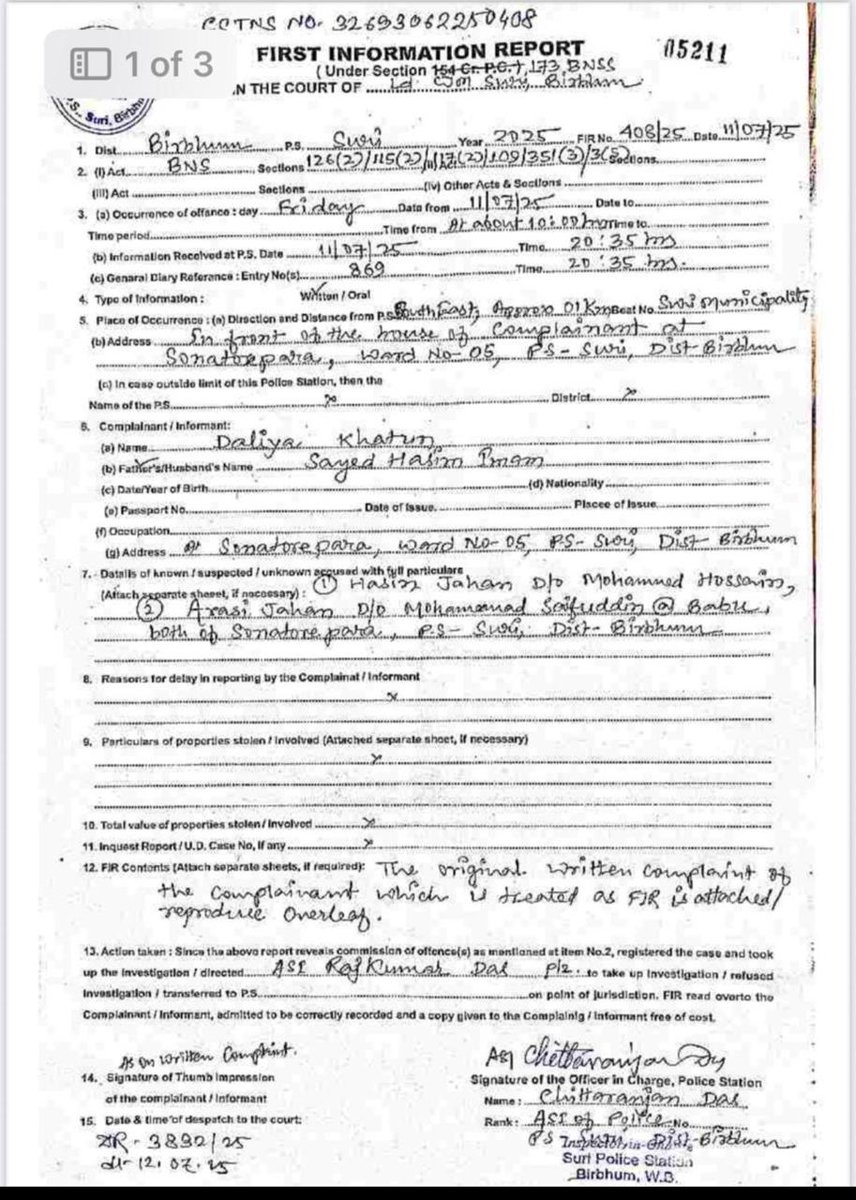 CCTNS NO. 32693062250408
1 of 3
FIRST INFORMATION REPORT
05211
( Under Section 154 Cr. P.C. ), 173 BNSS
IN THE COURT OF Ld CJM Suri, Birbhum
P.S., Suri, Birbhum
1. Dist. Birbhum P.S. Suri Year 2025 FIR No. 408/25 Date 11/07/25
2. (i) Act BNS Sections 126(2)/115(2)/117(2)/109/351(3)/3(5) Sections
(iii) Act Sections (iv) Other Acts & Sections
3. (a) Occurrence of offance : day Friday Date from 11/07/25 Date to
Time period Time from At about 10:00 hrs Time to
(b) Information Received at P.S. Date 11/07/25 Time 20:35 hrs
(c) Genaral Diary Reference : Entry No(s) 869 Time 20:35 hrs.
4. Type of Information : Written / Oral
5. Place of Occurrence : (a) Direction and Distance from P.S. South East, Approx 01 Km Beat No. Suri Municipality
(b) Address In front of the house of Complainant at
Sonatorepara, Ward No-05, PS- Suri, Dist-Birbhum
(c) In case outside limit of this Police Station, then the
Name of the P.S. x District x
6. Complainant / Informant:
(a) Name Daliya Khatun
(b) Father's/Husband's Name Sayed Hasim Imam
(c) Date/Year of Birth (d) Nationality
(e) Passport No. Date of Issue. Placee of Issue
(f) Occupation
(g) Address At Sonatorepara, Ward No-05, PS- Suri, Dist- Birbhum
7. Datails of known / suspected / unknown accused with full particulars
(Attach separate sheeet, if necossary) : (1) Hasin Jahan D/o Mohammed Hossain,
(2) Arasi Jahan D/o Mohammad Saifuddin @ Babu,
both of Sonatorepara, P.S- Suri, Dist- Birbhum
8. Reasons for delay in reporting by the Complainat / Informant
x
9. Particulars of properties stolen / Involved (Attached separate shoet, if necessary)
x
10. Total value of properties stolen / Involved x
11. Inquest Report / U.D. Case No, If any x
12. FIR Contents (Attach separate sheets, if required): The original written complaint of
the complainant which is treated as FIR is attached/
reproduce Overleaf.
13. Action taken : Since the above report reveals commission of offence(s) as mentioned at item No.2, registered the case and took
up the Investigation / directed ASI Raj Kumar Das Plz. to take up Investigation / refused
Investigation / transferred to P.S. on point of jurisdiction. FIR read overto the
Complainant / Informant, admitted to be correctly recorded and a copy given to the Complainig / Informant free of cost.
As on written Complaint.
14. Signature of Thumb Impression
of the complainant / Informant
15. Date & time of despatch to the court:
3892/25
dt- 12.07.25
ASI Chittaranjan Das
Signature of the Officer in Charge, Police Station
Name : Chittaranjan Das
Rank : ASI of Police No.
PS Dist- Birbhum
Inspector-in-Charge
Suri Police Station
Birbhum, W.B.